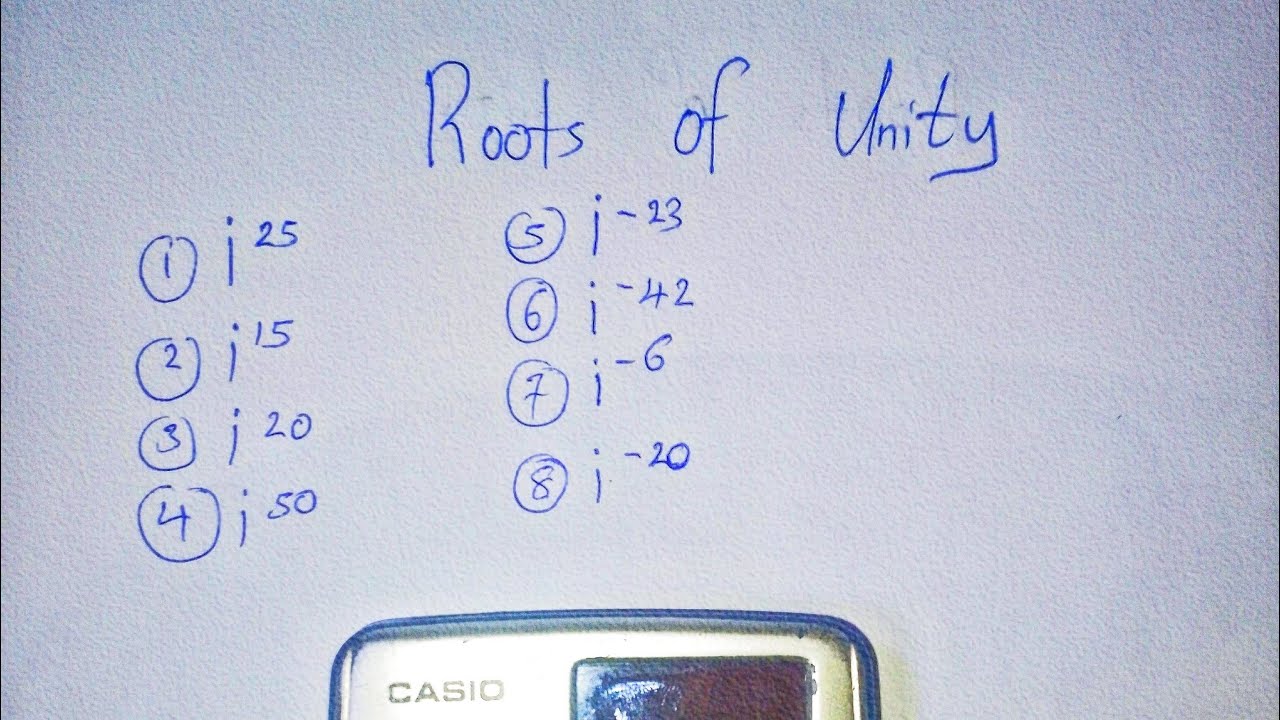 Roots of Unity
① j²⁵
② j¹⁵
③ j²⁰
④ j⁵⁰
⑤ j⁻²³
⑥ j⁻⁴²
⑦ j⁻⁶
⑧ j⁻²⁰
CASIO